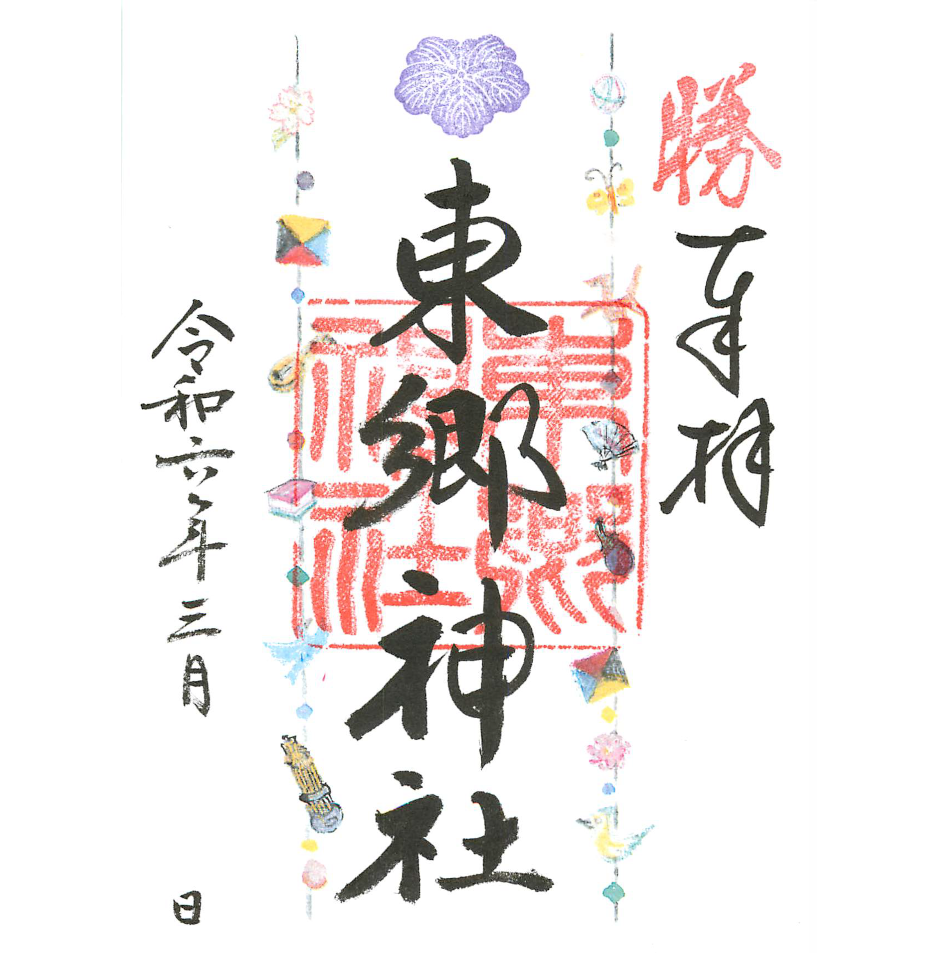 勝
奉拝
東郷神社
東郷神社
令和六年三月 日